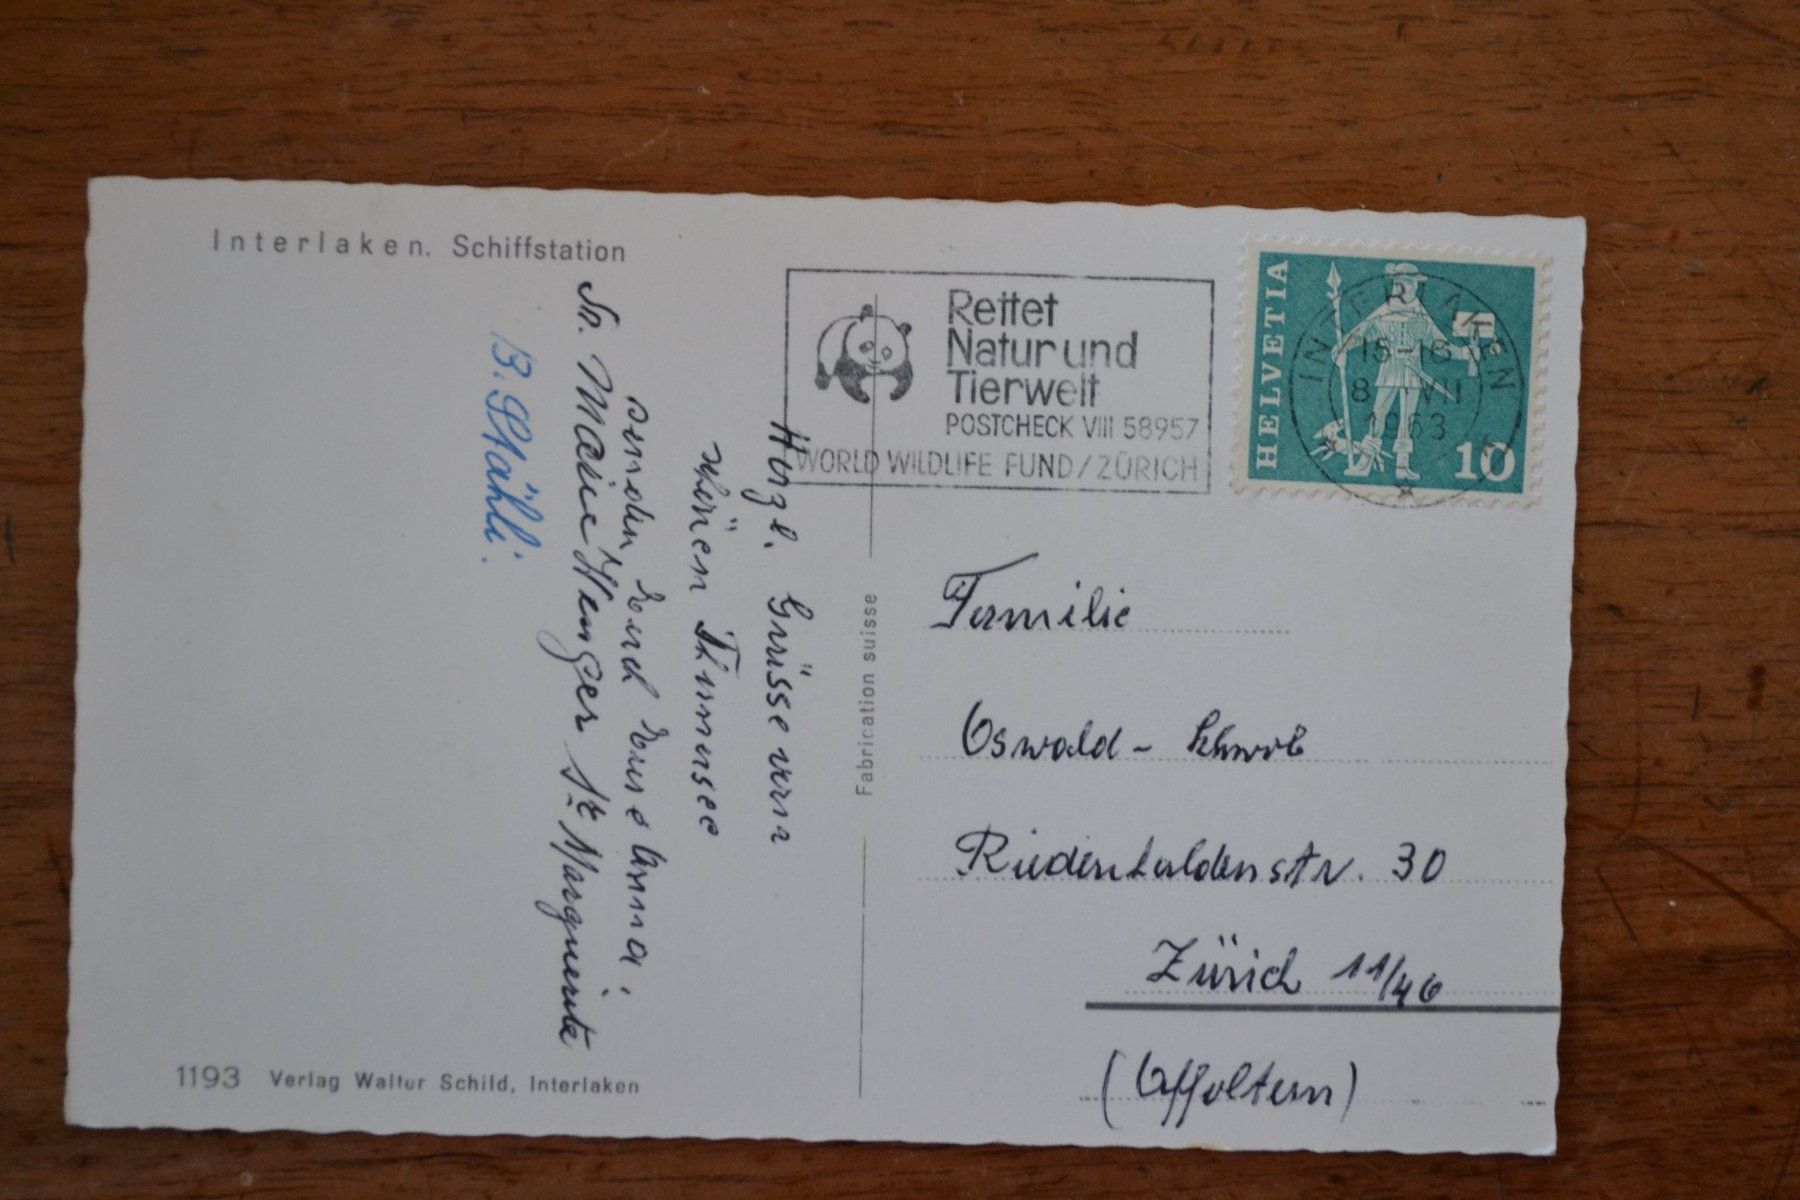 Interlaken. Schiffstation
Herzl. Grüsse vom
schönen Thunersee
senden Euch Eure Anna
Sr. Marie Wenger Sr. Marguerite
B. Stähli.
1193 Verlag Walter Schild, Interlaken
Fabrication suisse
Rettet
Natur und
Tierwelt
POSTCHECK VIII 58957
WORLD WILDLIFE FUND/ZÜRICH
HELVETIA
10
INTERLAKEN
8. VII
1963
Familie
Oswald - Schwob
Riedenhaldenstr. 30
Zürich 11/46
(Affoltern)